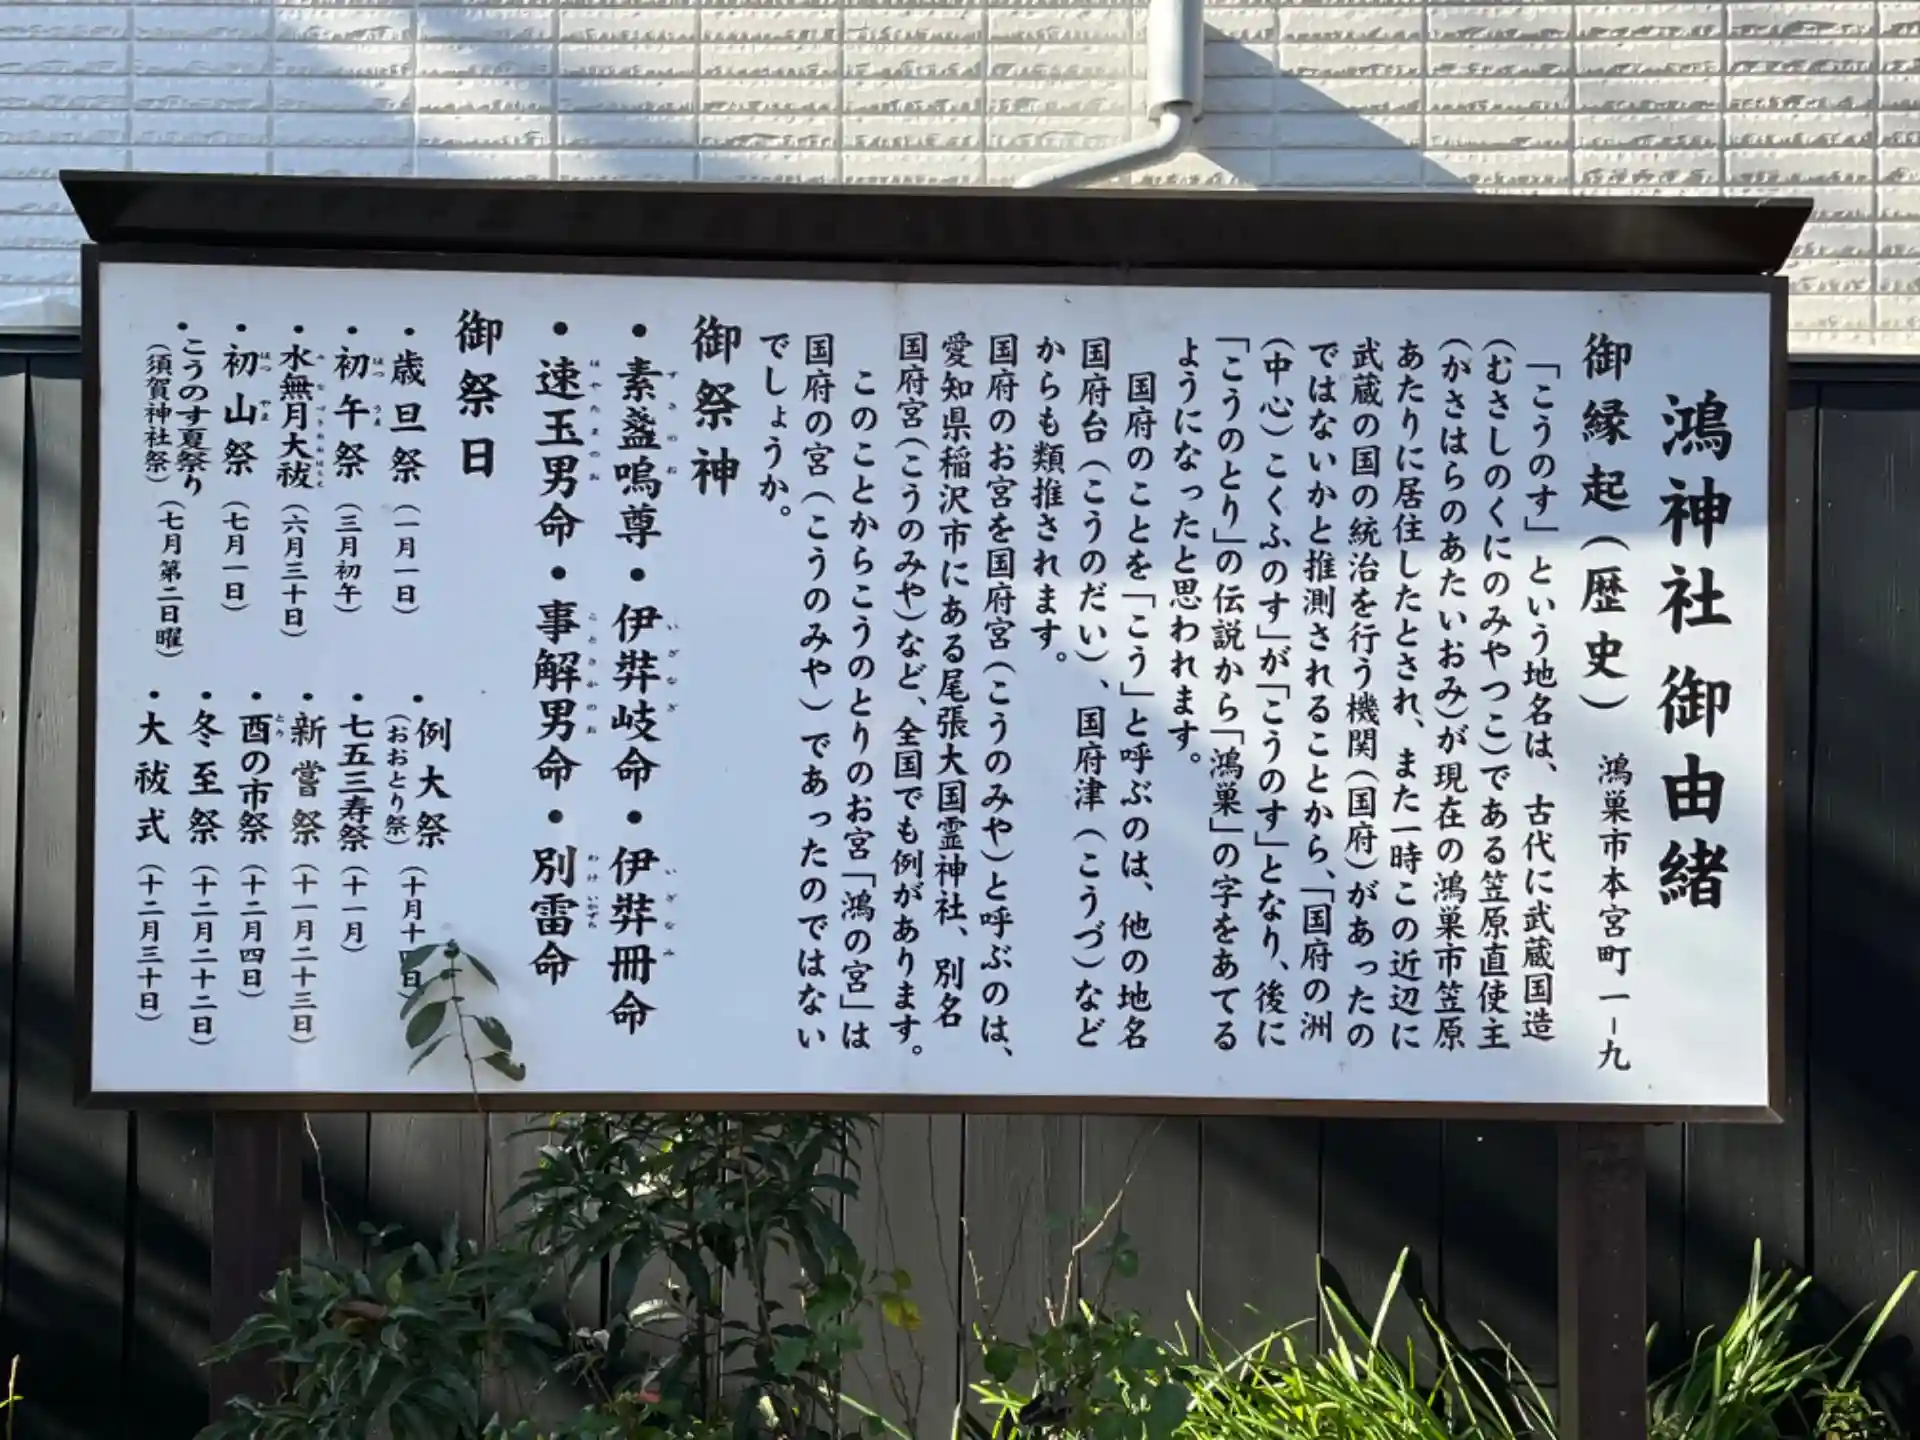 鴻神社 御由緒
御縁起（歴史） 鴻巣市本宮町一−九
「こうのす」という地名は、古代に武蔵国造
（むさしのくにのみやつこ）である笠原直使主
（かさはらのあたいおみ）が現在の鴻巣市笠原
あたりに居住したとされ、また一時この近辺に
武蔵の国の統治を行う機関（国府）があったの
ではないかと推測されることから、「国府の洲
（中心）こくふのす」が「こうのす」となり、後に
「こうのとり」の伝説から「鴻巣」の字をあてる
ようになったと思われます。
国府のことを「こう」と呼ぶのは、他の地名
国府台（こうのだい）、国府津（こうづ）など
からも類推されます。
国府のお宮を国府宮（こうのみや）と呼ぶのは、
愛知県稲沢市にある尾張大国霊神社、別名
国府宮（こうのみや）など、全国でも例があります。
このことからこうのとりのお宮「鴻の宮」は
国府の宮（こうのみや）であったのではない
でしょうか。
御祭神
・素盞嗚尊・伊弉岐命・伊弉冊命
・速玉男命・事解男命・別雷命
御祭日
・歳旦祭（一月一日）
・初午祭（三月初午）
・水無月大祓（六月三十日）
・初山祭（七月一日）
・こうのす夏祭り（七月第二日曜）
（須賀神社祭）
・例大祭（十月十四日）
（おおとり祭）
・七五三寿祭（十一月）
・新嘗祭（十一月二十三日）
・酉の市祭（十二月四日）
・冬至祭（十二月二十二日）
・大祓式（十二月三十日）